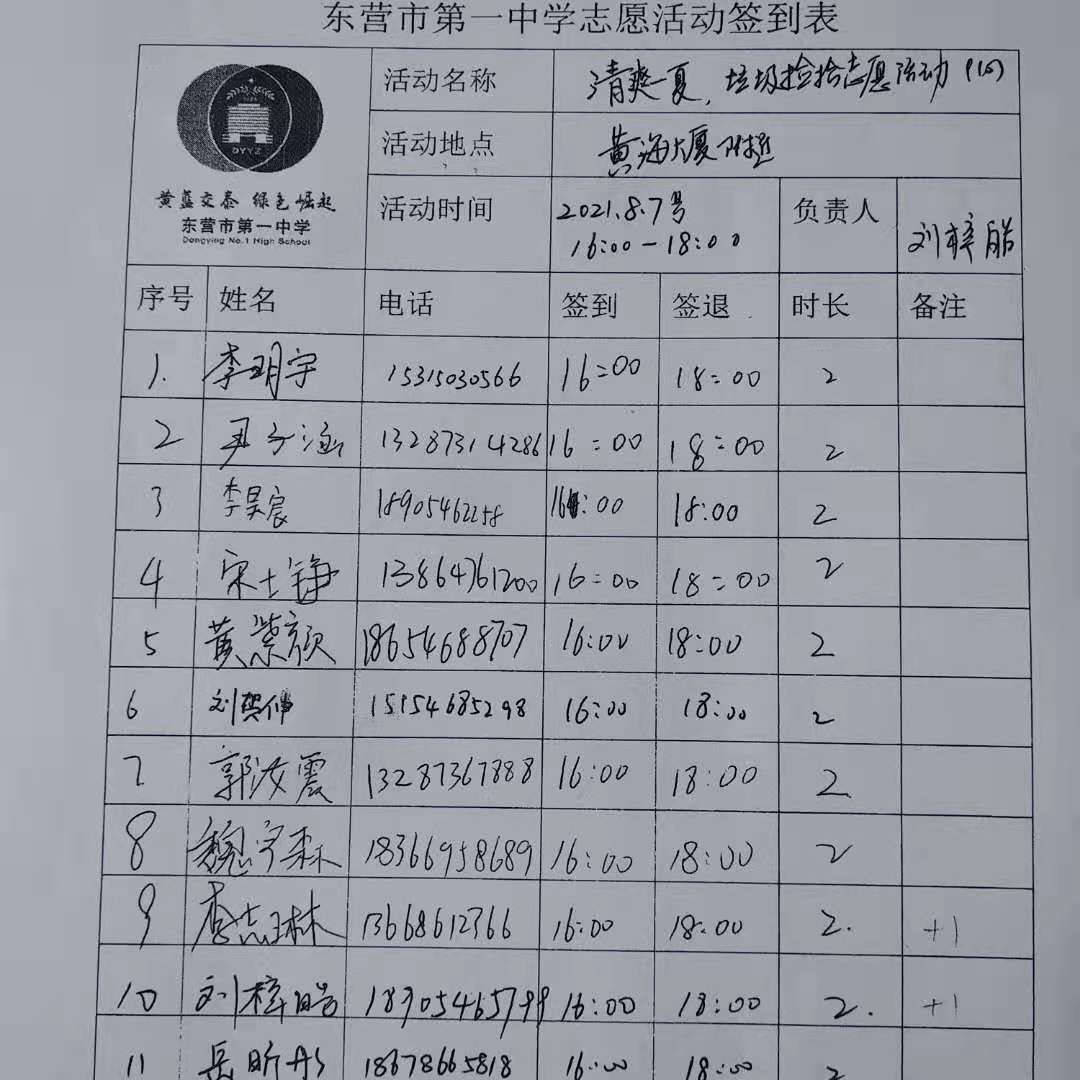 东营市第一中学志愿活动签到表
DYYZ
黄蓝交泰 绿色崛起
东营市第一中学
Dongying No.1 High School
活动名称 清爽一夏、垃圾捡拾志愿活动
活动地点 黄海大厦附近
活动时间 2021.8.7号 16:00-18:00 负责人 刘梓皓
序号 姓名 电话 签到 签退 时长 备注
1. 李玥宇 15315030566 16:00 18:00 2
2 尹子涵 13287314286 16:00 18:00 2
3 李昊宸 18905462258 16:00 18:00 2
4 宋士铮 13864761200 16:00 18:00 2
5 黄紫颜 18654688707 16:00 18:00 2
6 刘贺伟 15154685298 16:00 18:00 2
7 郭汝震 13287367888 16:00 18:00 2.
8 魏宇森 18366958689 16:00 18:00 2
9 李志琳 13668612766 16:00 18:00 2. +1
10 刘梓皓 18905465799 16:00 18:00 2. +1
11 岳昕彤 18678665818 16:00 18:00 2